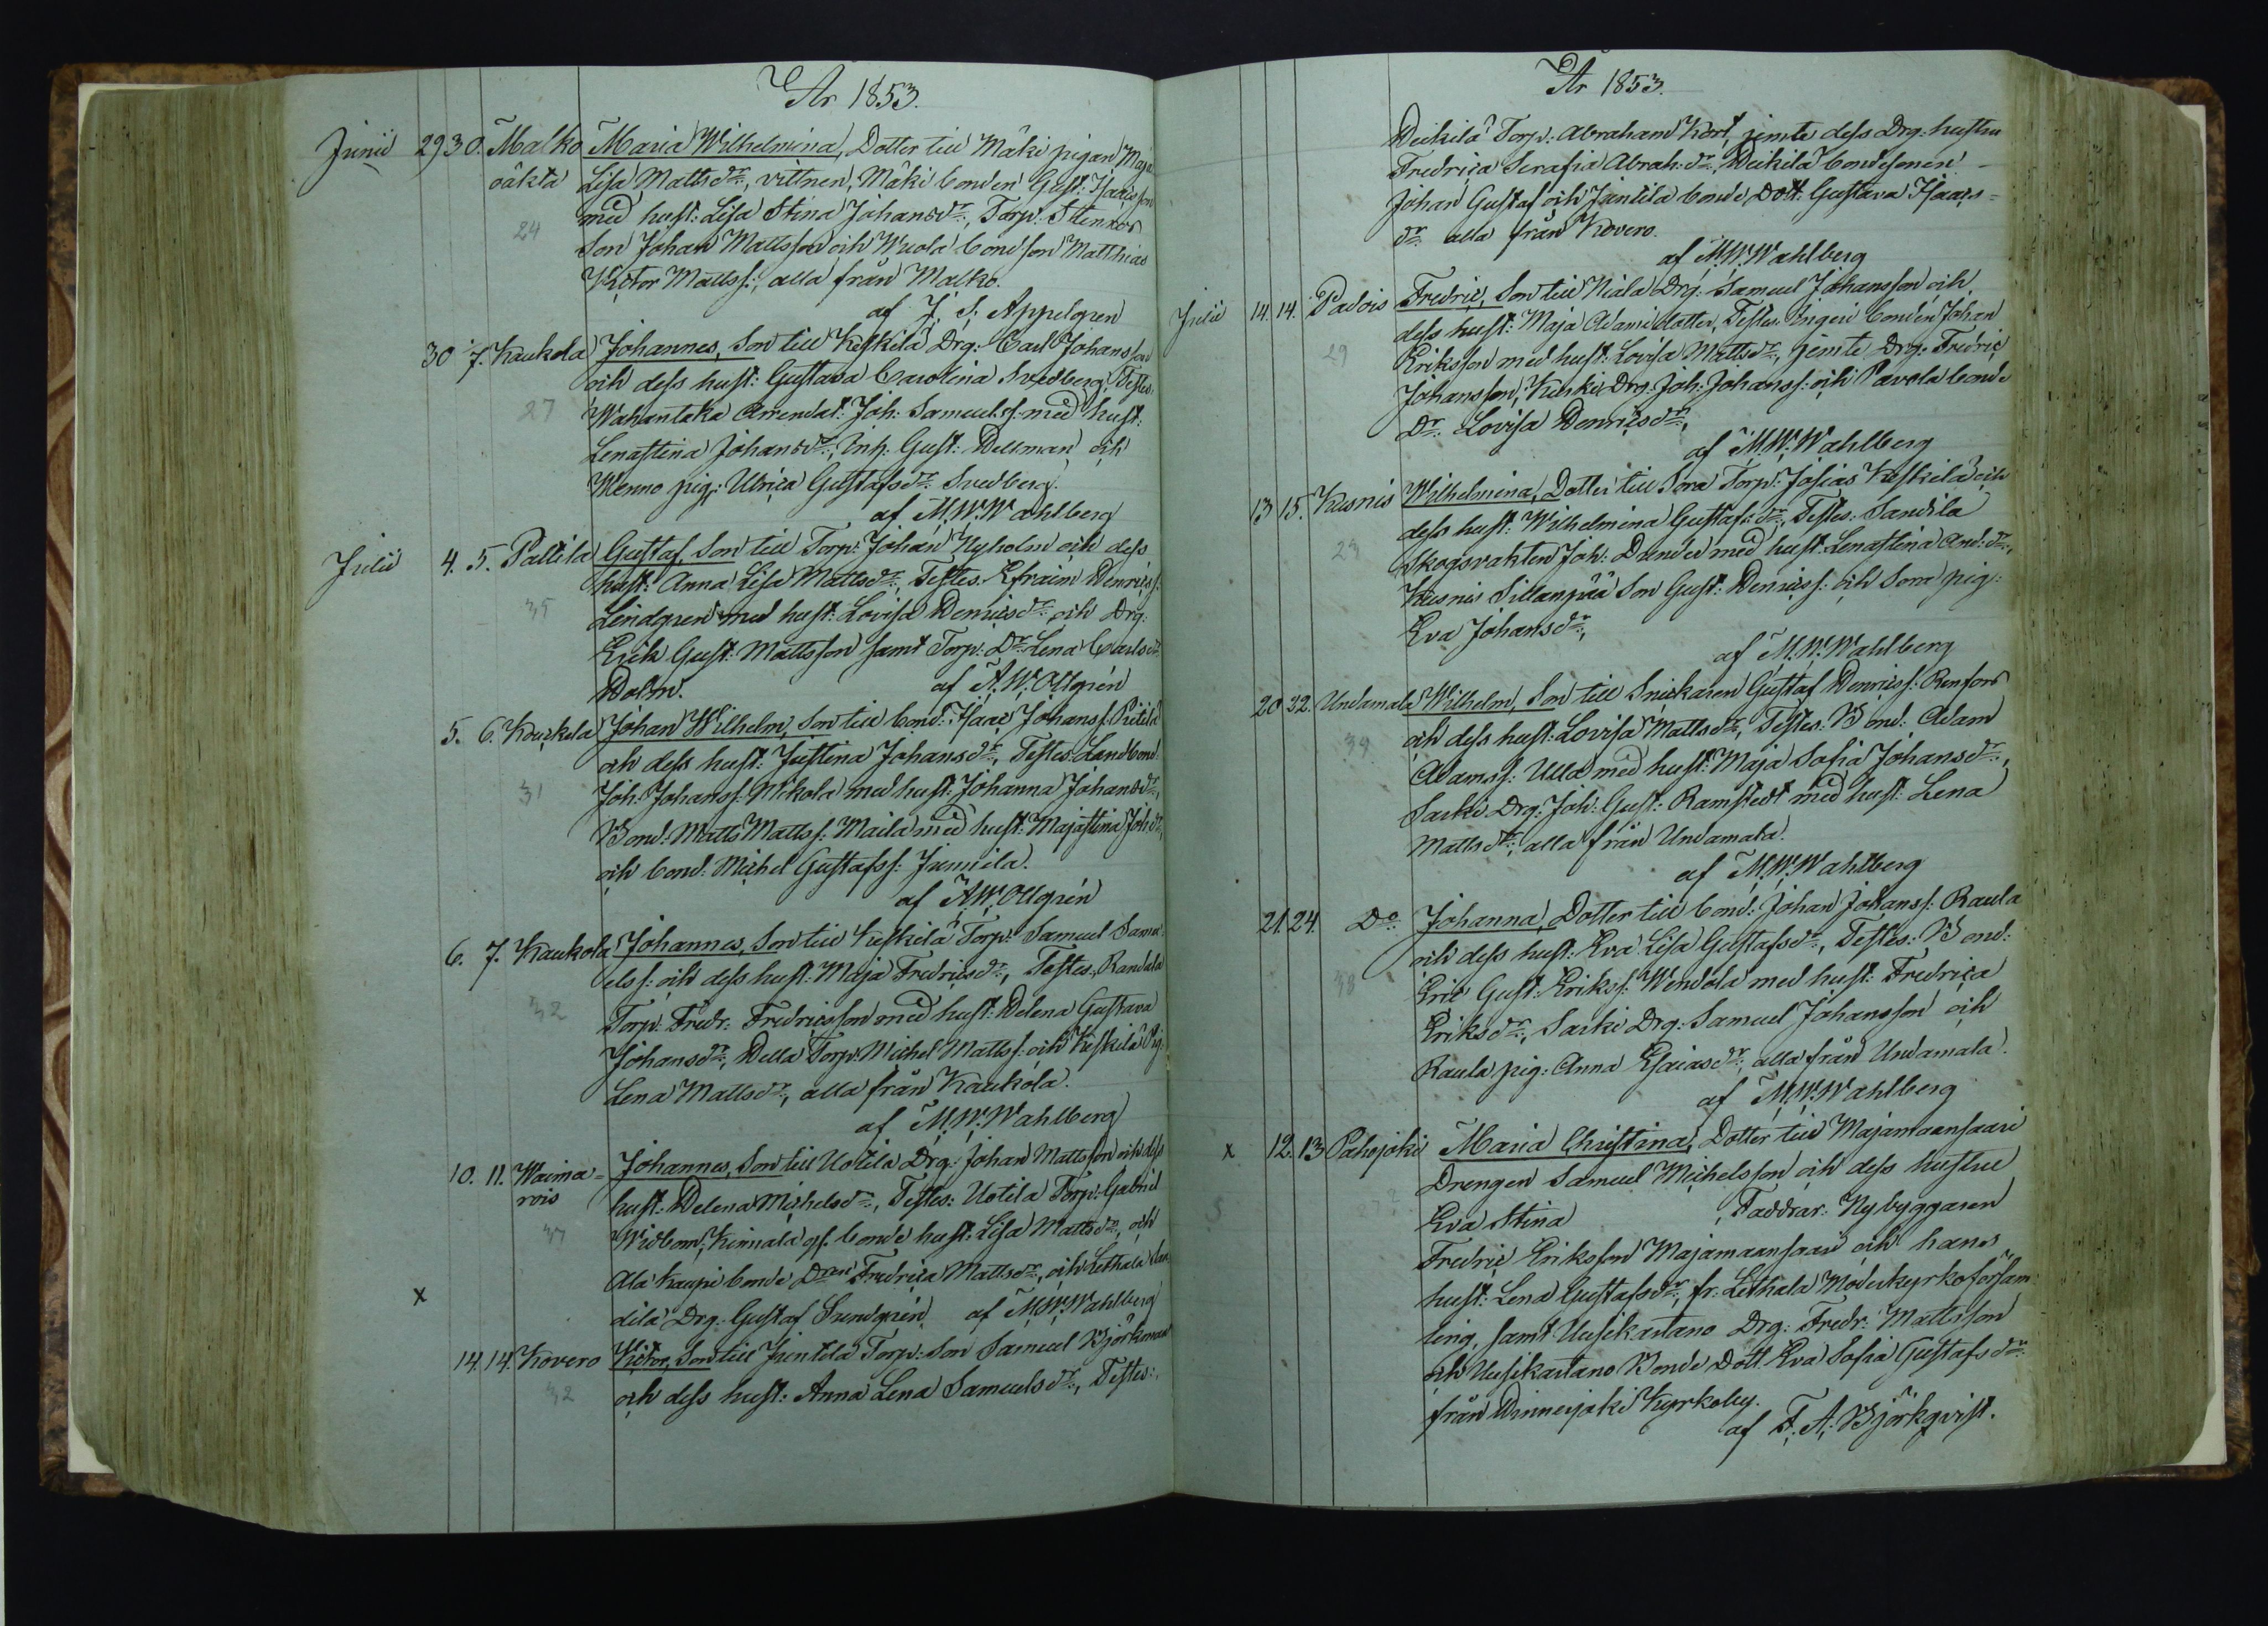 År 1853.
Junii 29 30. Malko Maria Wilhelmina, Dotter till Mäki pigan Maja
oäkta Lisa Mattsdr:, vittnen, Mäki bonden Gust: Isaacsson
24 med hust: Lisa Stina Johansdr:, Torp: Stenroos
Son Johan Mattsson och Wuola bondson Matthias
Victor Mattss:, alla från Malko.
af J. S. Appelgren
30 7. Kaukola Johannes, Son till Keskilä Drg: Carl Johansson
och dess hust: Gustava Carolina Svedberg, Testes:
27 Wahantaka Arrendat: Joh: Samuelss: med hust:
Lenastina Johansdr:, Inh: Gust: Hellman och
Menno pig: Ulrica Gustafsdr: Svedberg.
af M. W. Wahlberg
Julii 4. 5. Pallila Gustaf, Son till Torp: Johan Nyholm och dess
hust: Anna Lisa Mattsdr:, Testes. Efraim Henrics:
35 Lindgren med hust: Lovisa Henricsdr: och Drg:
Erik Gust: Mattsson samt Torp: Dr. Lena Carlsdr.
Holm. af A. W. Ollgrén
5. 6. Kouckela Johan Wilhelm, Son till bond: Isaac Johanss:
och dess hust: Justina Johansdr:, Testes: Landbond:
31 Joh: Johanss: Nikola med hust: Johanna Johansdr:,
Bond: Matts Mattss: Maila med hust: Majastina Johdr:
och bond: Michel Gustafss: Jumila.
af A. W. Ollgrén
6. 7. Kaukola Johannes, Son till Keskilä Torp: Samuel Samu-
elss: och dess hust: Maja Fredricsdr:, Testes, Randala
32 Torp: Fredr: Fredricsson med hust: Helena Gustava
Johansdr:, Hella Torp: Michel Mattss: och Keskilä Pig:
Lena Mattsdr:, alla från Kaukola.
af M. W. Wahlberg
10. 11. Waima- Johannes, Son till Uotila Drg: Johan Mattsson och dess
rois hust: Helena Michelsdr:, Testes: Uotila Torp: Gabriel
37 Widbom, Kinnala gf. bonde hust: Lisa Mattsdr:, och
Ala Kaupi bonde Fredrica Mattsdr:, och Lethala
x dilä Drg: Gustaf Sundgrén af M. W. Wahlberg
14. 14. Kovero Victor, Son till Júntela Torp: Son Samuel Björkman
32 och dess hust: Anna Lena Samuelsdr:, Testes:.
År 1853.
Heikilä Torp: Abraham Kort, jemte dess Drg: hustru
Fredrica Serafia Abrah: dr:, Heikilä bondesonen
Johan Gustaf och Jantila bonde Dott: Gustava Isaacs-
dr. alla från Kovero.
af M. W. Wahlberg
Julii 14. 14. Padois Fredric, Son till Niala Drg: Samuel Johansson och
dess hust: Maja Adamidotter, Testes: Ingeri bonden Johan
29 Eriksson med hust: Lovisa Mattsdr:, jemte Drg: Fredric
Johansson, Kuski Drg: Joh: Johanss: och Pavola bonde
Dr: Lovisa Henricsdr:,
af M. W. Wahlberg
13 15. Kusnis Wilhelmina, Dotter till Sora Torp: Josias Keskilä och
dess hust: Wilhelmina Gustafs: dr:, Testes: Sandila
23 Skogsvakten Joh: med hust: Lenastina And: dr:,
Kusnis Sillanpää Son Gust: Henricss: och Sora pig:
Eva Johansdr:,
af M. W. Wahlberg
20 22. Undamala Wilhelm, Son till Snickaren Gustaf Henricss: Renfors
och dess hust: Lovisa Mattsdr:, Testes: Bond: Adam
39 Adamss: Ulla med hust: Maja Sofia Johansdr:,
Sarki Drg: Joh: Gust: Ramstedt med hust: Lena
Mattsdr:, alla från Undamala.
af M. W. Wahlberg
21. 24. Do: Johanna, Dotter till bond: Johan Johanss: Raula
och dess hust: Eva Lisa Gustafsdr:, Testes: Bond:
38 Eric Gust: Erikss: Wendola med hust: Fredrica
Eriksdr:, Sarki Drg: Samuel Johansson och
Raula pig: Anna Esaiasdr:, alla från Undamala.
af M. W. Wahlberg
x 12. 13 Pahojoki Maria Christina, Dotter till Majamaansaari
Drengen Samuel Michelsson och dess hustru
Eva Stina , Faddrar: Nybyggaren
Fredric Eriksson Majamaansaari och hans
hust: Lena Gustafsdr:, fr: Lethala Moderkyrkoförsam-
ling, samt Uusikartano Drg: Fredr: Mattsson
och Uusikartano Bonde Dott: Eva Sofia Gustafsdr:
från Hinnerjoki Kyrkoby.
af F. A. Björkqvist.